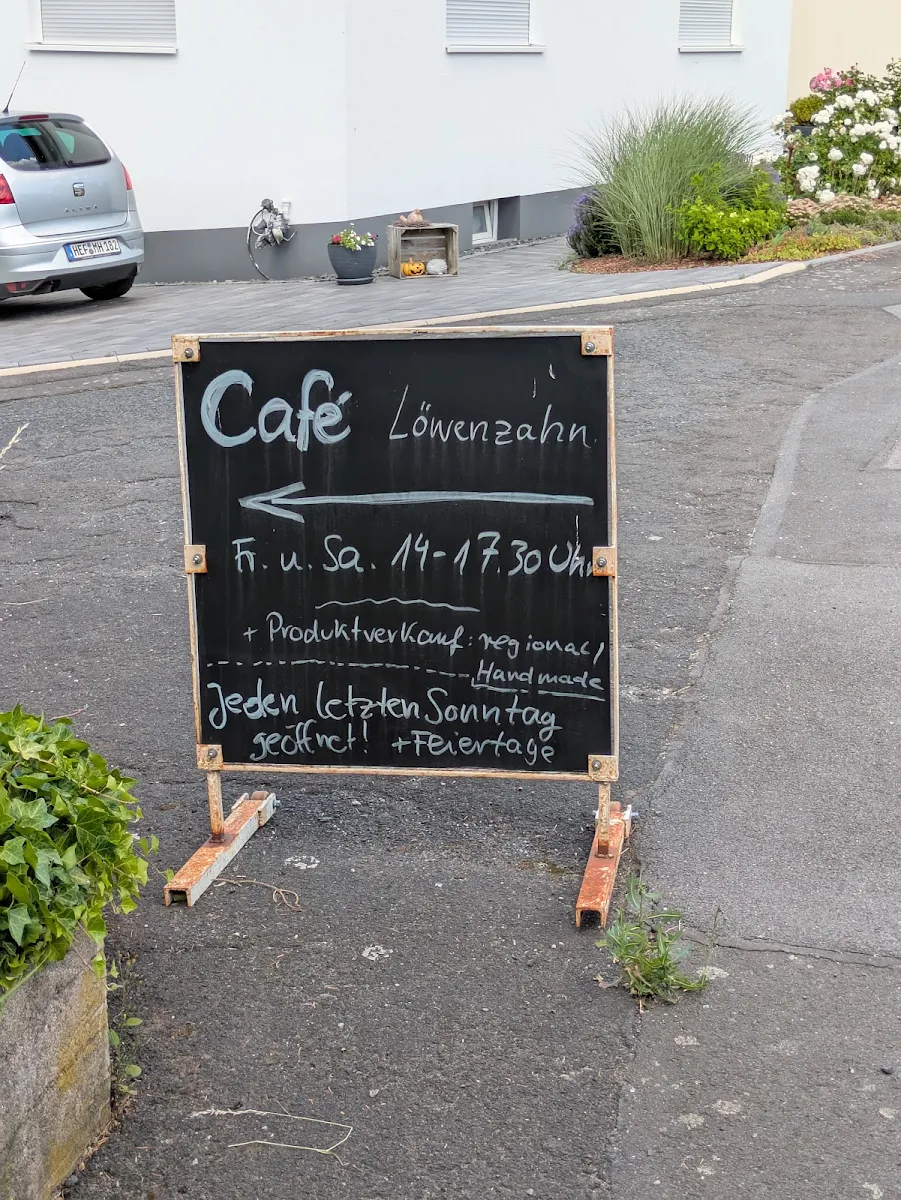 HEF MH 182
Café Löwenzahn
Fr. u. Sa. 14-17.30 Uhr
+ Produktverkauf: regional/
Handmade
Jeden letzten Sonntag
geöffnet! +Feiertage